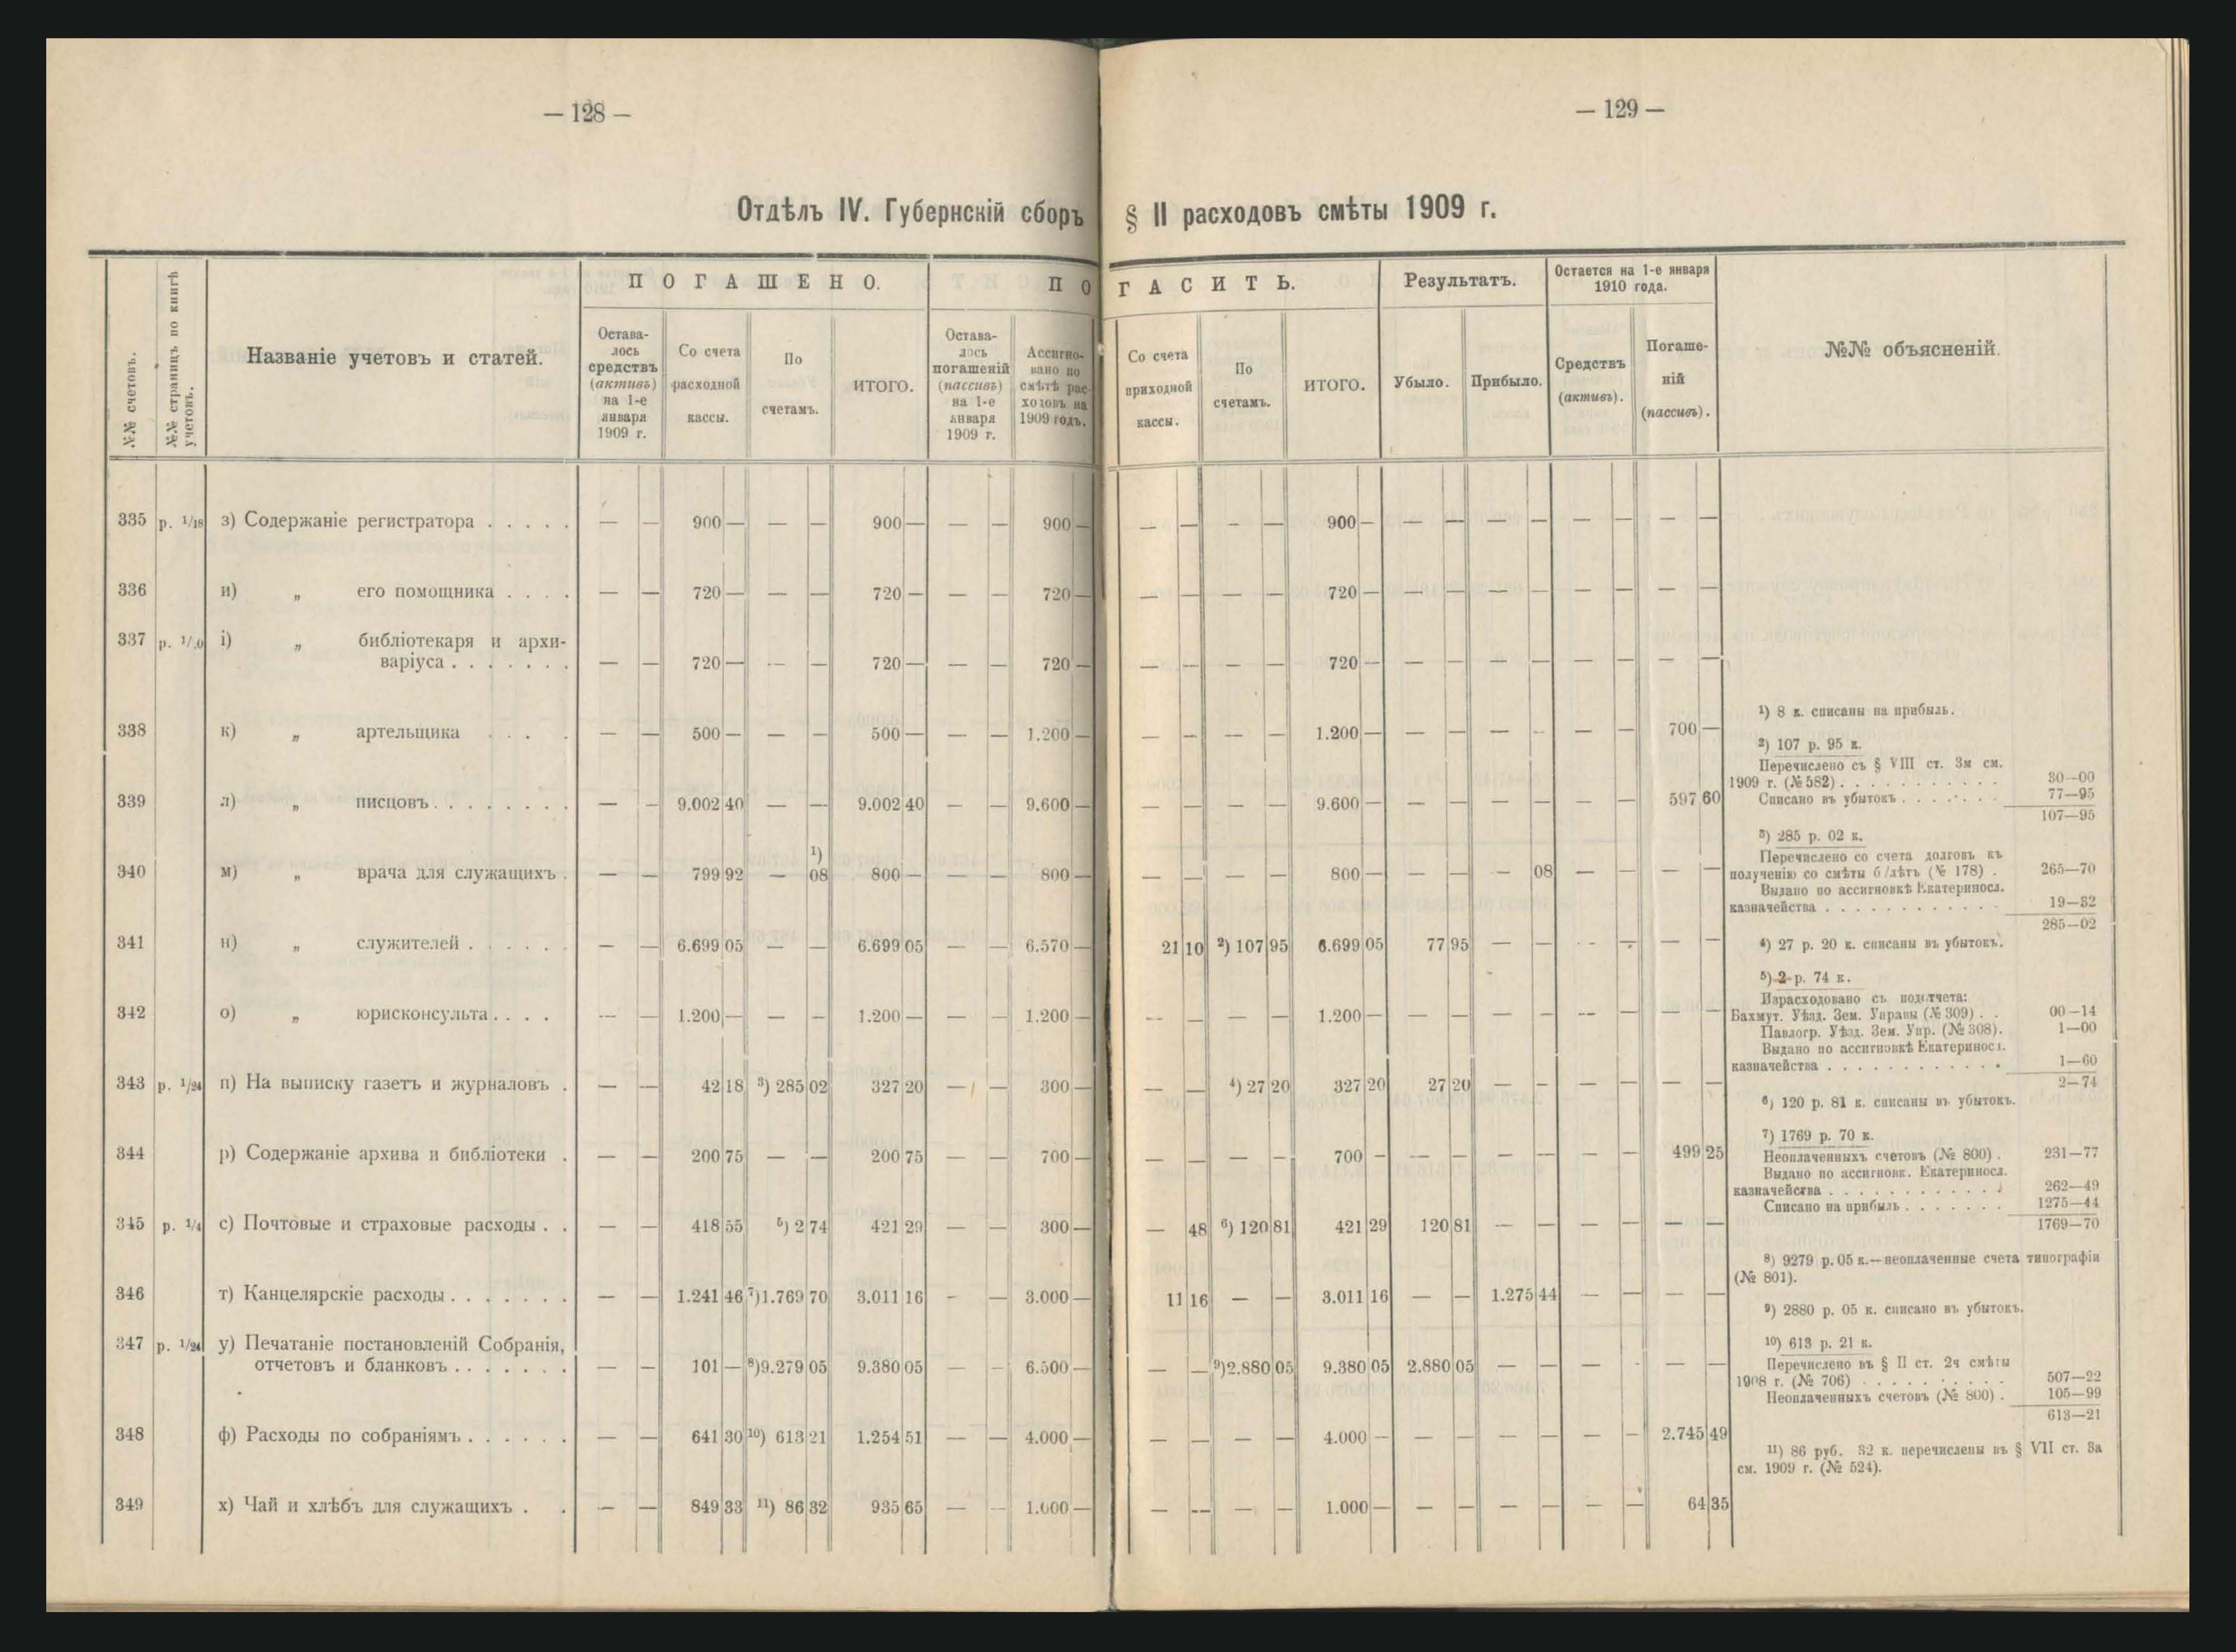 — 128 —
— 129 —
Отдѣлъ IV. Губернскій сборъ § II расходовъ смѣты 1909 г.
№№ счетовъ.
№№ страницъ по книгѣ учетовъ.
Названіе учетовъ и статей.
ПОГАШЕНО.
Остава-
лось
средствъ
(активъ)
на 1-е
января
1909 г.
Со счета
расходной
кассы.
По
счетамъ.
ИТОГО.
ПОГАСИТЬ.
Остава-
лось
погашеній
(пассивъ)
на 1-е
января
1909 г.
Ассигно-
вано по
смѣтѣ рас-
ходовъ на
1909 годъ.
Со счета
приходной
кассы.
По
счетамъ.
ИТОГО.
Результатъ.
Убыло.
Прибыло.
Остается на 1-е января
1910 года.
Средствъ
(активъ).
Погаше-
ній
(пассивъ).
№№ объясненій.
335 р. 1/18 з) Содержаніе регистратора . . . . . — — 900 — — — 900 — — — 900 — — — — — 900 — — — — — — — — —
336 и) „ его помощника . . . . — — 720 — — — 720 — — — 720 — — — — — 720 — — — — — — — — —
337 р. і) „ библіотекаря и архи-
варіуса . . . . . . . — — 720 — — — 720 — — — 720 — — — — — 720 — — — — — — — — —
338 к) „ артельщика . . . . — — 500 — — — 500 — — — 1.200 — — — — — 1.200 — — — — — — — 700 —
339 л) „ писцовъ . . . . . . . . — — 9.002 40 — — 9.002 40 — — 9.600 — — — — — 9.600 — — — — — — — 597 60
340 м) „ врача для служащихъ . — — 799 92 — ¹) 08 800 — — — 800 — — — — — 800 — — — — 08 — — — —
341 н) „ служителей . . . . . . — — 6.699 05 — — 6.699 05 — — 6.570 — 21 10 ²) 107 95 6.699 05 77 95 — — — — — —
342 о) „ юрисконсульта . . . . — — 1.200 — — — 1.200 — — — 1.200 — — — — — 1.200 — — — — — — — — —
343 р. 1/24 п) На выписку газетъ и журналовъ . — — 42 18 ³) 285 02 327 20 — — 300 — — — ⁴) 27 20 327 20 27 20 — — — — — —
344 р) Содержаніе архива и библіотеки . — — 200 75 — — 200 75 — — 700 — — — — — 700 — — — — — — — 499 25
345 р. 1/4 с) Почтовые и страховые расходы . . — — 418 55 ⁵) 2 74 421 29 — — 300 — — 48 ⁶) 120 81 421 29 120 81 — — — — — —
346 т) Канцелярскіе расходы . . . . . . . — — 1.241 46 ⁷) 1.769 70 3.011 16 — — 3.000 — 11 16 — — 3.011 16 — — 1.275 44 — — — —
347 р. 1/24 у) Печатаніе постановленій Собранія,
отчетовъ и бланковъ . . . . . . . — — 101 — ⁸) 9.279 05 9.380 05 — — 6.500 — — — ⁹) 2.880 05 9.380 05 2.880 05 — — — — — —
348 ф) Расходы по собраніямъ . . . . . . — — 641 30 ¹⁰) 613 21 1.254 51 — — 4.000 — — — — — 4.000 — — — — — — — 2.745 49
349 х) Чай и хлѣбъ для служащихъ . . — — 849 33 ¹¹) 86 32 935 65 — — 1.000 — — — — — 1.000 — — — — — — — 64 35
¹) 8 к. списаны на прибыль.
²) 107 р. 95 к.
Перечислено съ § VIII ст. 3м см.
1909 г. (№ 582) . . . . . . . . . . . 30—00
Списано въ убытокъ . . . . . . . 77—95
107—95
³) 285 р. 02 к.
Перечислено со счета долговъ къ
полученію со смѣты б/лѣтъ (№ 178) . 265—70
Выдано по ассигновкѣ Екатериносл.
казначейства . . . . . . . . . . . . 19—32
285—02
⁴) 27 р. 20 к. списаны въ убытокъ.
⁵) 2 р. 74 к.
Израсходовано съ подотчета:
Бахмут. Уѣзд. Зем. Управы (№ 309) . . 00—14
Павлогр. Уѣзд. Зем. Упр. (№ 308). 1—00
Выдано по ассигновкѣ Екатериносл.
казначейства . . . . . . . . . . . . 1—60
2—74
⁶) 120 р. 81 к. списаны въ убытокъ.
⁷) 1769 р. 70 к.
Неоплаченныхъ счетовъ (№ 800) . 231—77
Выдано по ассигновк. Екатериносл.
казначейства . . . . . . . . . . . . 262—49
Списано на прибыль . . . . . . . 1275—44
1769—70
⁸) 9279 р. 05 к.—неоплаченные счета типографіи
(№ 801).
⁹) 2880 р. 05 к. списано въ убытокъ.
¹⁰) 613 р. 21 к.
Перечислено въ § II ст. 2ч смѣты
1908 г. (№ 706) . . . . . . . . . . 507—22
Неоплаченныхъ счетовъ (№ 800) . 105—99
613—21
¹¹) 86 руб. 32 к. перечислены въ § VII ст. 3а
см. 1909 г. (№ 524).